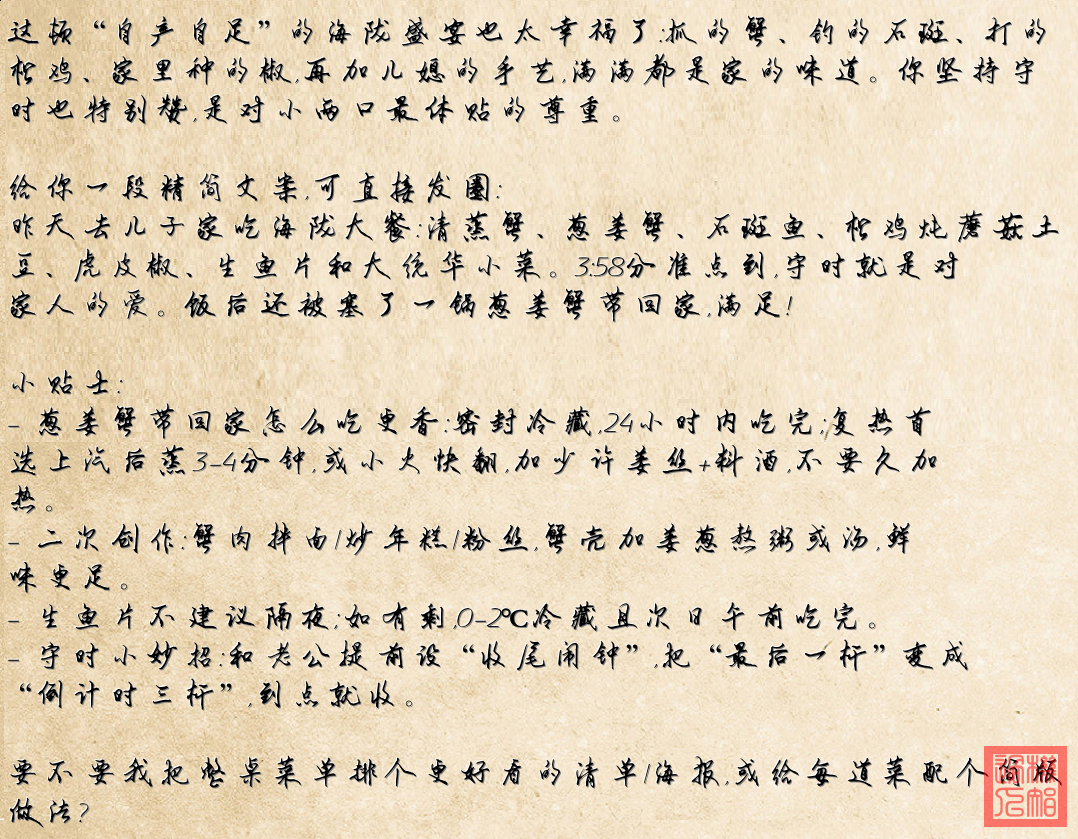 这顿“自产自足”的海陇盛宴也太幸福了:抓的蟹、钓的石斑、打的
松鸡、家里种的椒,再加儿媳的手艺,满满都是家的味道。你坚持守
时也特别赞,是对小两口最体贴的尊重。
给你一段精简文案,可直接发圈:
昨天去儿子家吃海陇大餐:清蒸蟹、葱姜蟹、石斑鱼、松鸡炖蘑菇土
豆、虎皮椒、生鱼片和大统华小菜。3:58分准点到,守时就是对
家人的爱。饭后还被塞了一锅葱姜蟹带回家,满足!
小贴士:
- 葱姜蟹带回家怎么吃更香:密封冷藏,24小时内吃完;复热首
选上汽后蒸3-4分钟,或小火快翻,加少许姜丝+料酒,不要久加
热。
- 二次创作:蟹肉拌面/炒年糕/粉丝,蟹壳加姜葱熬粥或汤,鲜
味更足。
- 生鱼片不建议隔夜;如有剩,0-2℃冷藏且次日午前吃完。
- 守时小妙招:和老公提前设“收尾闹钟”,把“最后一杆”变成
“倒计时三杆”,到点就收。
要不要我把整桌菜单排个更好看的清单/海报,或给每道菜配个简版
做法?